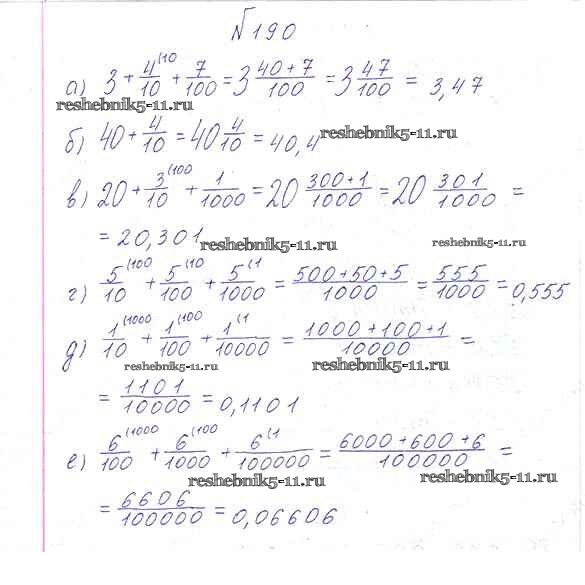 №190
а) 3 + 4/10 (10 + 7/100 = 3 40+7/100 = 3 47/100 = 3,47
reshebnik5-11.ru
б) 40 + 4/10 = 40 4/10 = 40,4 reshebnik5-11.ru
в) 20 + 3/10 (100 + 1/1000 = 20 300+1/1000 = 20 301/1000 =
= 20,301 reshebnik5-11.ru reshebnik5-11.ru
г) 5/10 (100 + 5/100 (10 + 5/1000 (1 = 500+50+5/1000 = 555/1000 = 0,555
д) 1/10 (1000 + 1/100 (100 + 1/10000 (1 = 1000+100+1/10000 =
reshebnik5-11.ru reshebnik5-11.ru
= 1101/10000 = 0,1101
е) 6/100 (1000 + 6/1000 (100 + 6/100000 (1 = 6000+600+6/100000 =
reshebnik5-11.ru reshebnik5-11.ru
= 6606/100000 = 0,06606